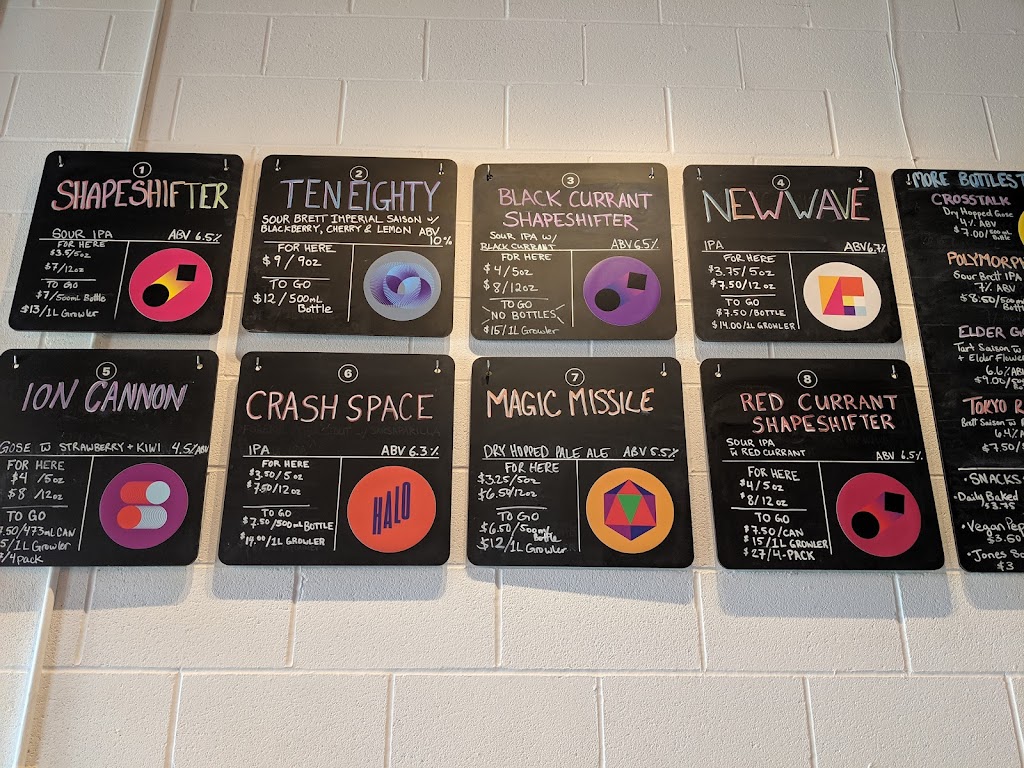 1
SHAPESHIFTER
SOUR IPA ABV 6.5%
FOR HERE
$3.5/5oz
$7/12oz
TO GO
$7/500ml Bottle
$13/1L Growler
2
TEN EIGHTY
SOUR BRETT IMPERIAL SAISON w/
BLACKBERRY, CHERRY & LEMON ABV
10%
FOR HERE
$9/9oz
TO GO
$12/500mL
Bottle
3
BLACK CURRANT
SHAPESHIFTER
SOUR IPA W/
BLACK CURRANT ABV 6.5%
FOR HERE
$4/5oz
$8/12oz
TO GO
NO BOTTLES
$15/1L Growler
4
NEW WAVE
IPA ABV 6.7%
FOR HERE
$3.75/5oz
$7.50/12oz
TO GO
$7.50/BOTTLE
$14.00/1L GROWLER
5
ION CANNON
GOSE W STRAWBERRY + KIWI 4.5% ABV
FOR HERE
$4/5oz
$8/12oz
TO GO
7.50/473ml CAN
5/1L Growler
/4pack
6
CRASH SPACE
IPA ABV 6.3%
FOR HERE
$3.50/5oz
$7.50/12oz
TO GO
$7.50/500mL BOTTLE
/1L GROWLER
HALO
7
MAGIC MISSILE
DRY HOPPED PALE ALE ABV 5.5%
FOR HERE
$3.25/5oz
$6.50/12oz
TO GO
$6.50/500ml
Bottle
$12/1L Growler
8
RED CURRANT
SHAPESHIFTER
SOUR IPA
W RED CURRANT ABV 6.5%
FOR HERE
$4/5oz
$8/12oz
TO GO
$7.50/CAN
$15/1L GROWLER
$27/4-PACK
MORE BOTTLES T
CROSSTALK
Dry Hopped Gose
4% ABV
$7.00/500ml
Bottle
POLYMORPH
Sour Brett IPA
7% ABV
$8.50/500m
Bottl
ELDER G
Tart Saison w
+ Elder Flower
6.6% AB
$9.00/
TOKYO R
Brett Saison w
6.4%
$7.50/5
• SNACKS
• Daily Baked
$3.75
• Vegan Pep
$3.50
• Jones So
$3